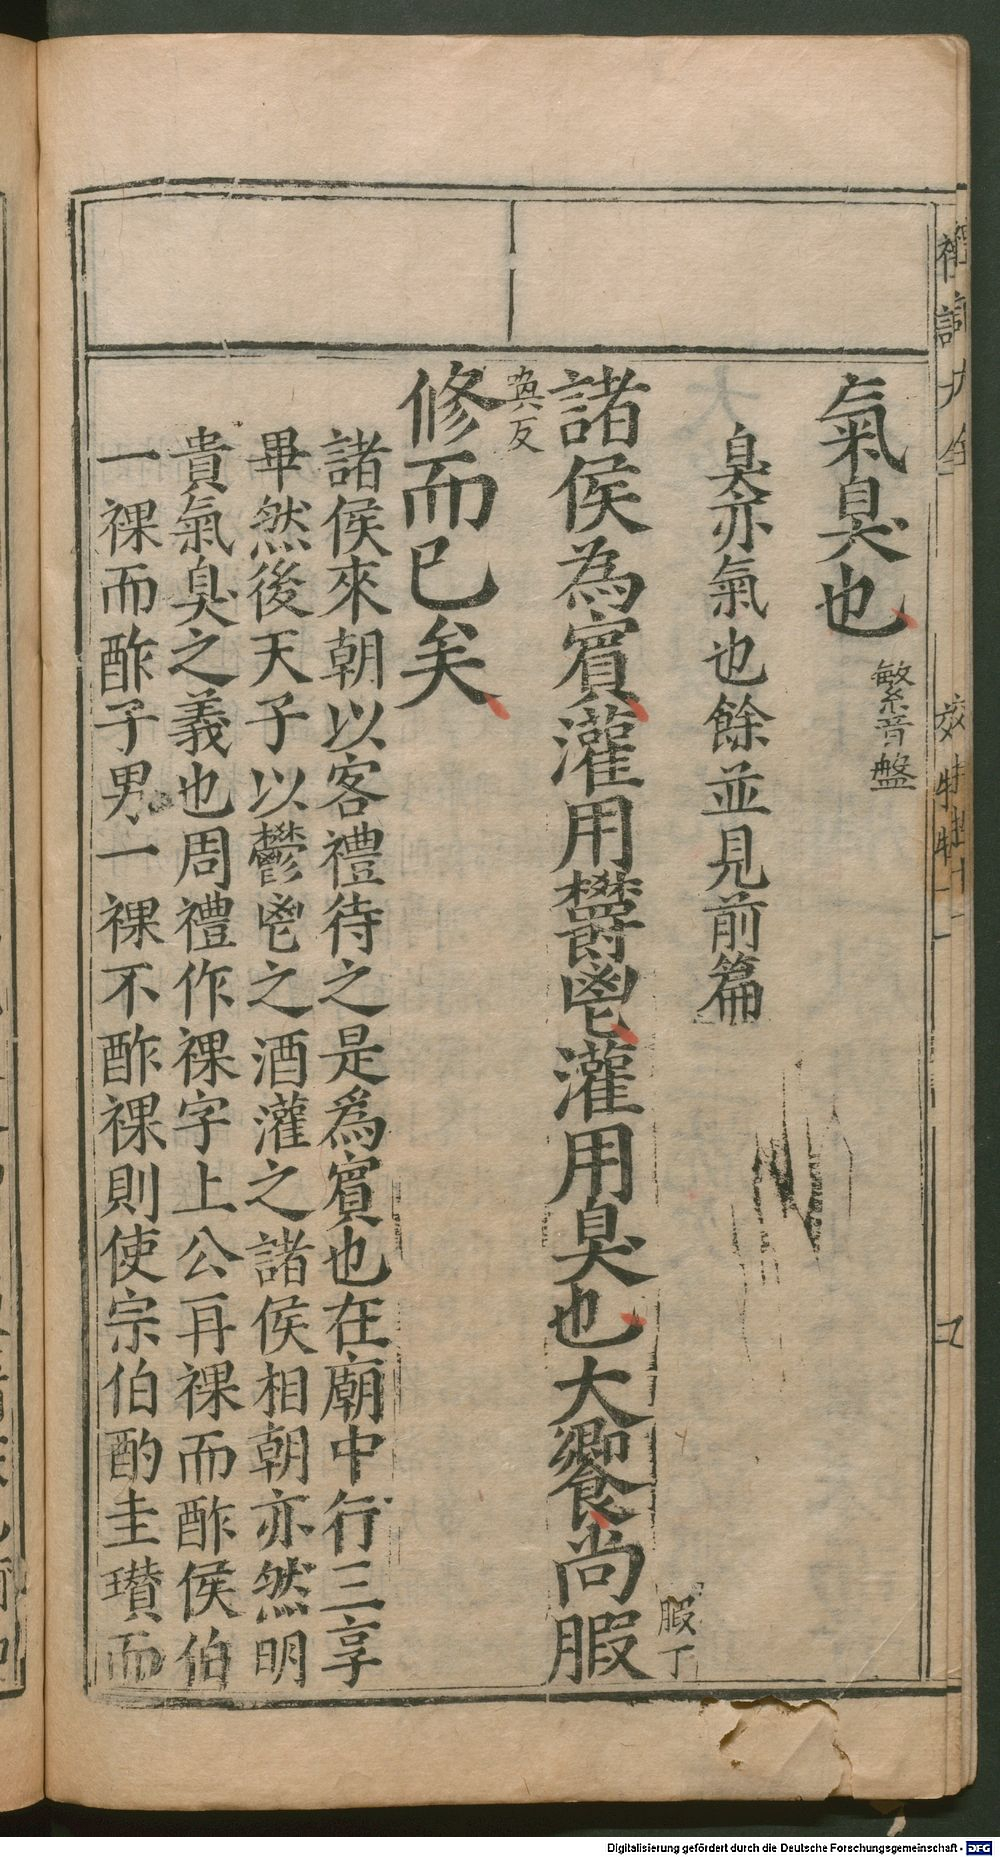 氣臭也
繁音盤
臭亦氣也餘並見前篇
諸侯為賓灌用鬱鬯灌用臭也大饗尚腶
腶丁
奐反
修而已矣
諸侯來朝以客禮待之是為賓也在廟中行三享
畢然後天子以鬱鬯之酒灌之諸侯相朝亦然明
貴氣臭之義也周禮作祼字上公再祼而酢侯伯
一祼而酢子男一祼不酢祼則使宗伯酌圭瓚而
Digitalisierung gefördert durch die Deutsche Forschungsgemeinschaft - DFG